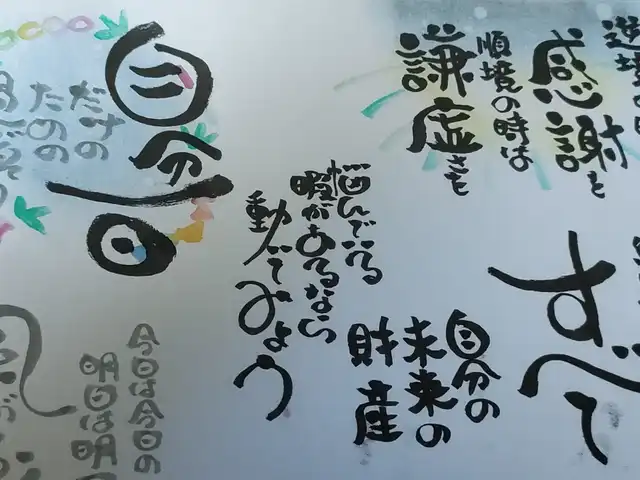 逆境の
感謝を
順境の時は
謙虚さを
すべて
自分の
未来の
財産
悩んでいる
暇があるなら
動いてみよう
自分
だけの
ための
今日は今日の
明日は明